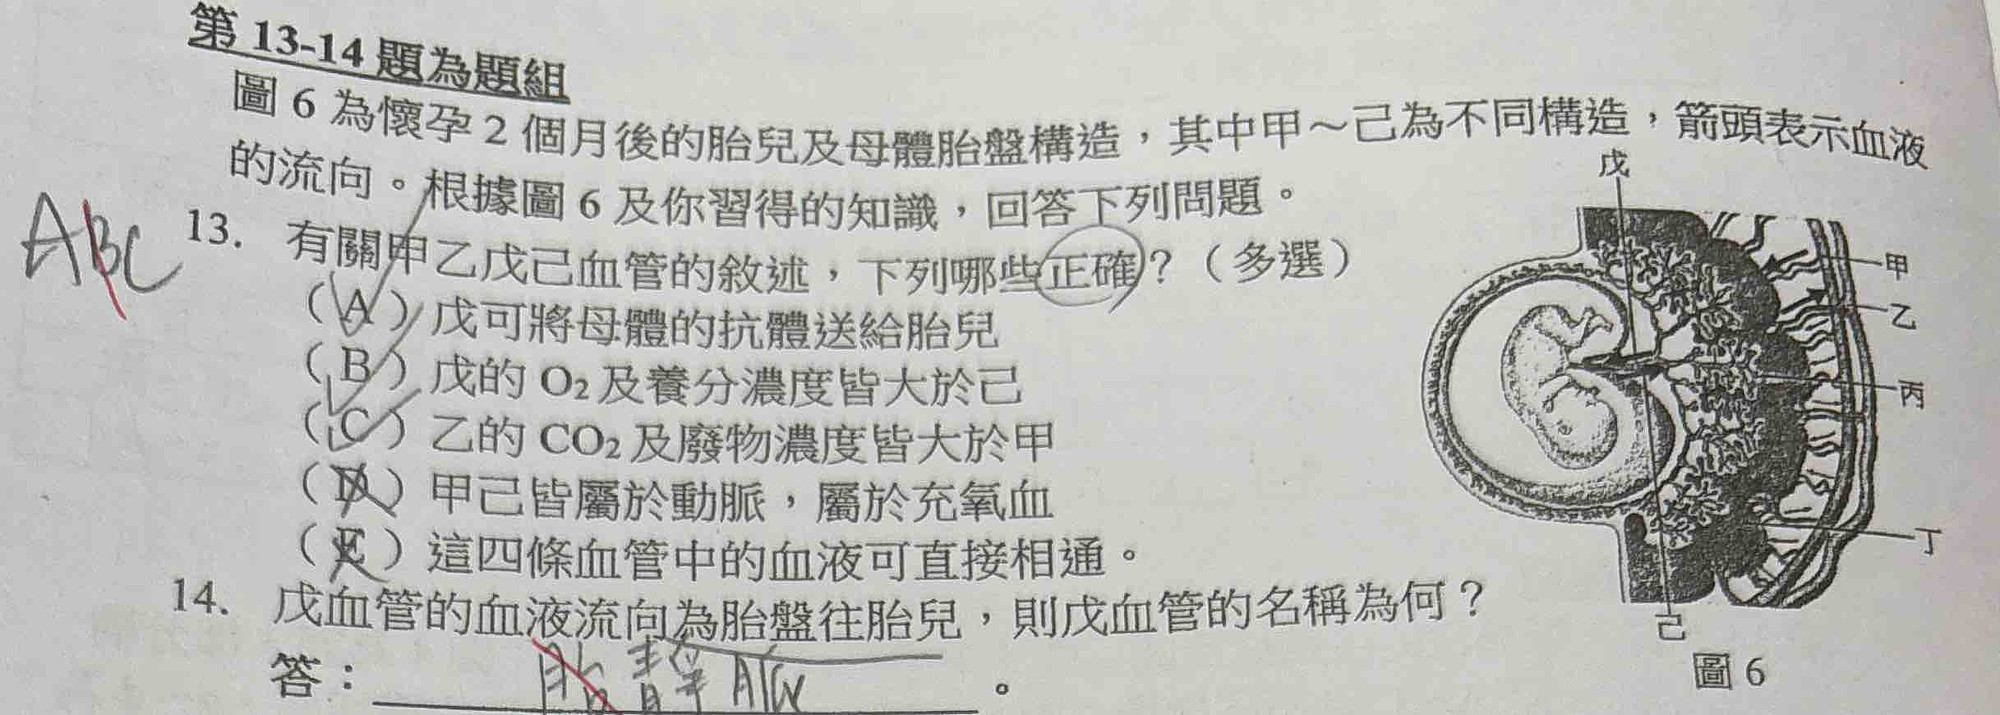 第 13-14 題為題組
圖 6 為懷孕 2 個月後的胎兒及母體胎盤構造，其中甲～己為不同構造，箭頭表示血液
的流向。根據圖 6 及你習得的知識，回答下列問題。
ABC
13. 有關甲乙戊己血管的敘述，下列哪些正確？（多選）
（A）戊可將母體的抗體送給胎兒
（B）戊的 O₂ 及養分濃度皆大於己
（C）乙的 CO₂ 及廢物濃度皆大於甲
（D）甲己皆屬於動脈，屬於充氧血
（E）這四條血管中的血液可直接相通。
14. 戊血管的血液流向為胎盤往胎兒，則戊血管的名稱為何？
答：臍靜脈。
戊
甲
乙
丙
丁
己
圖 6